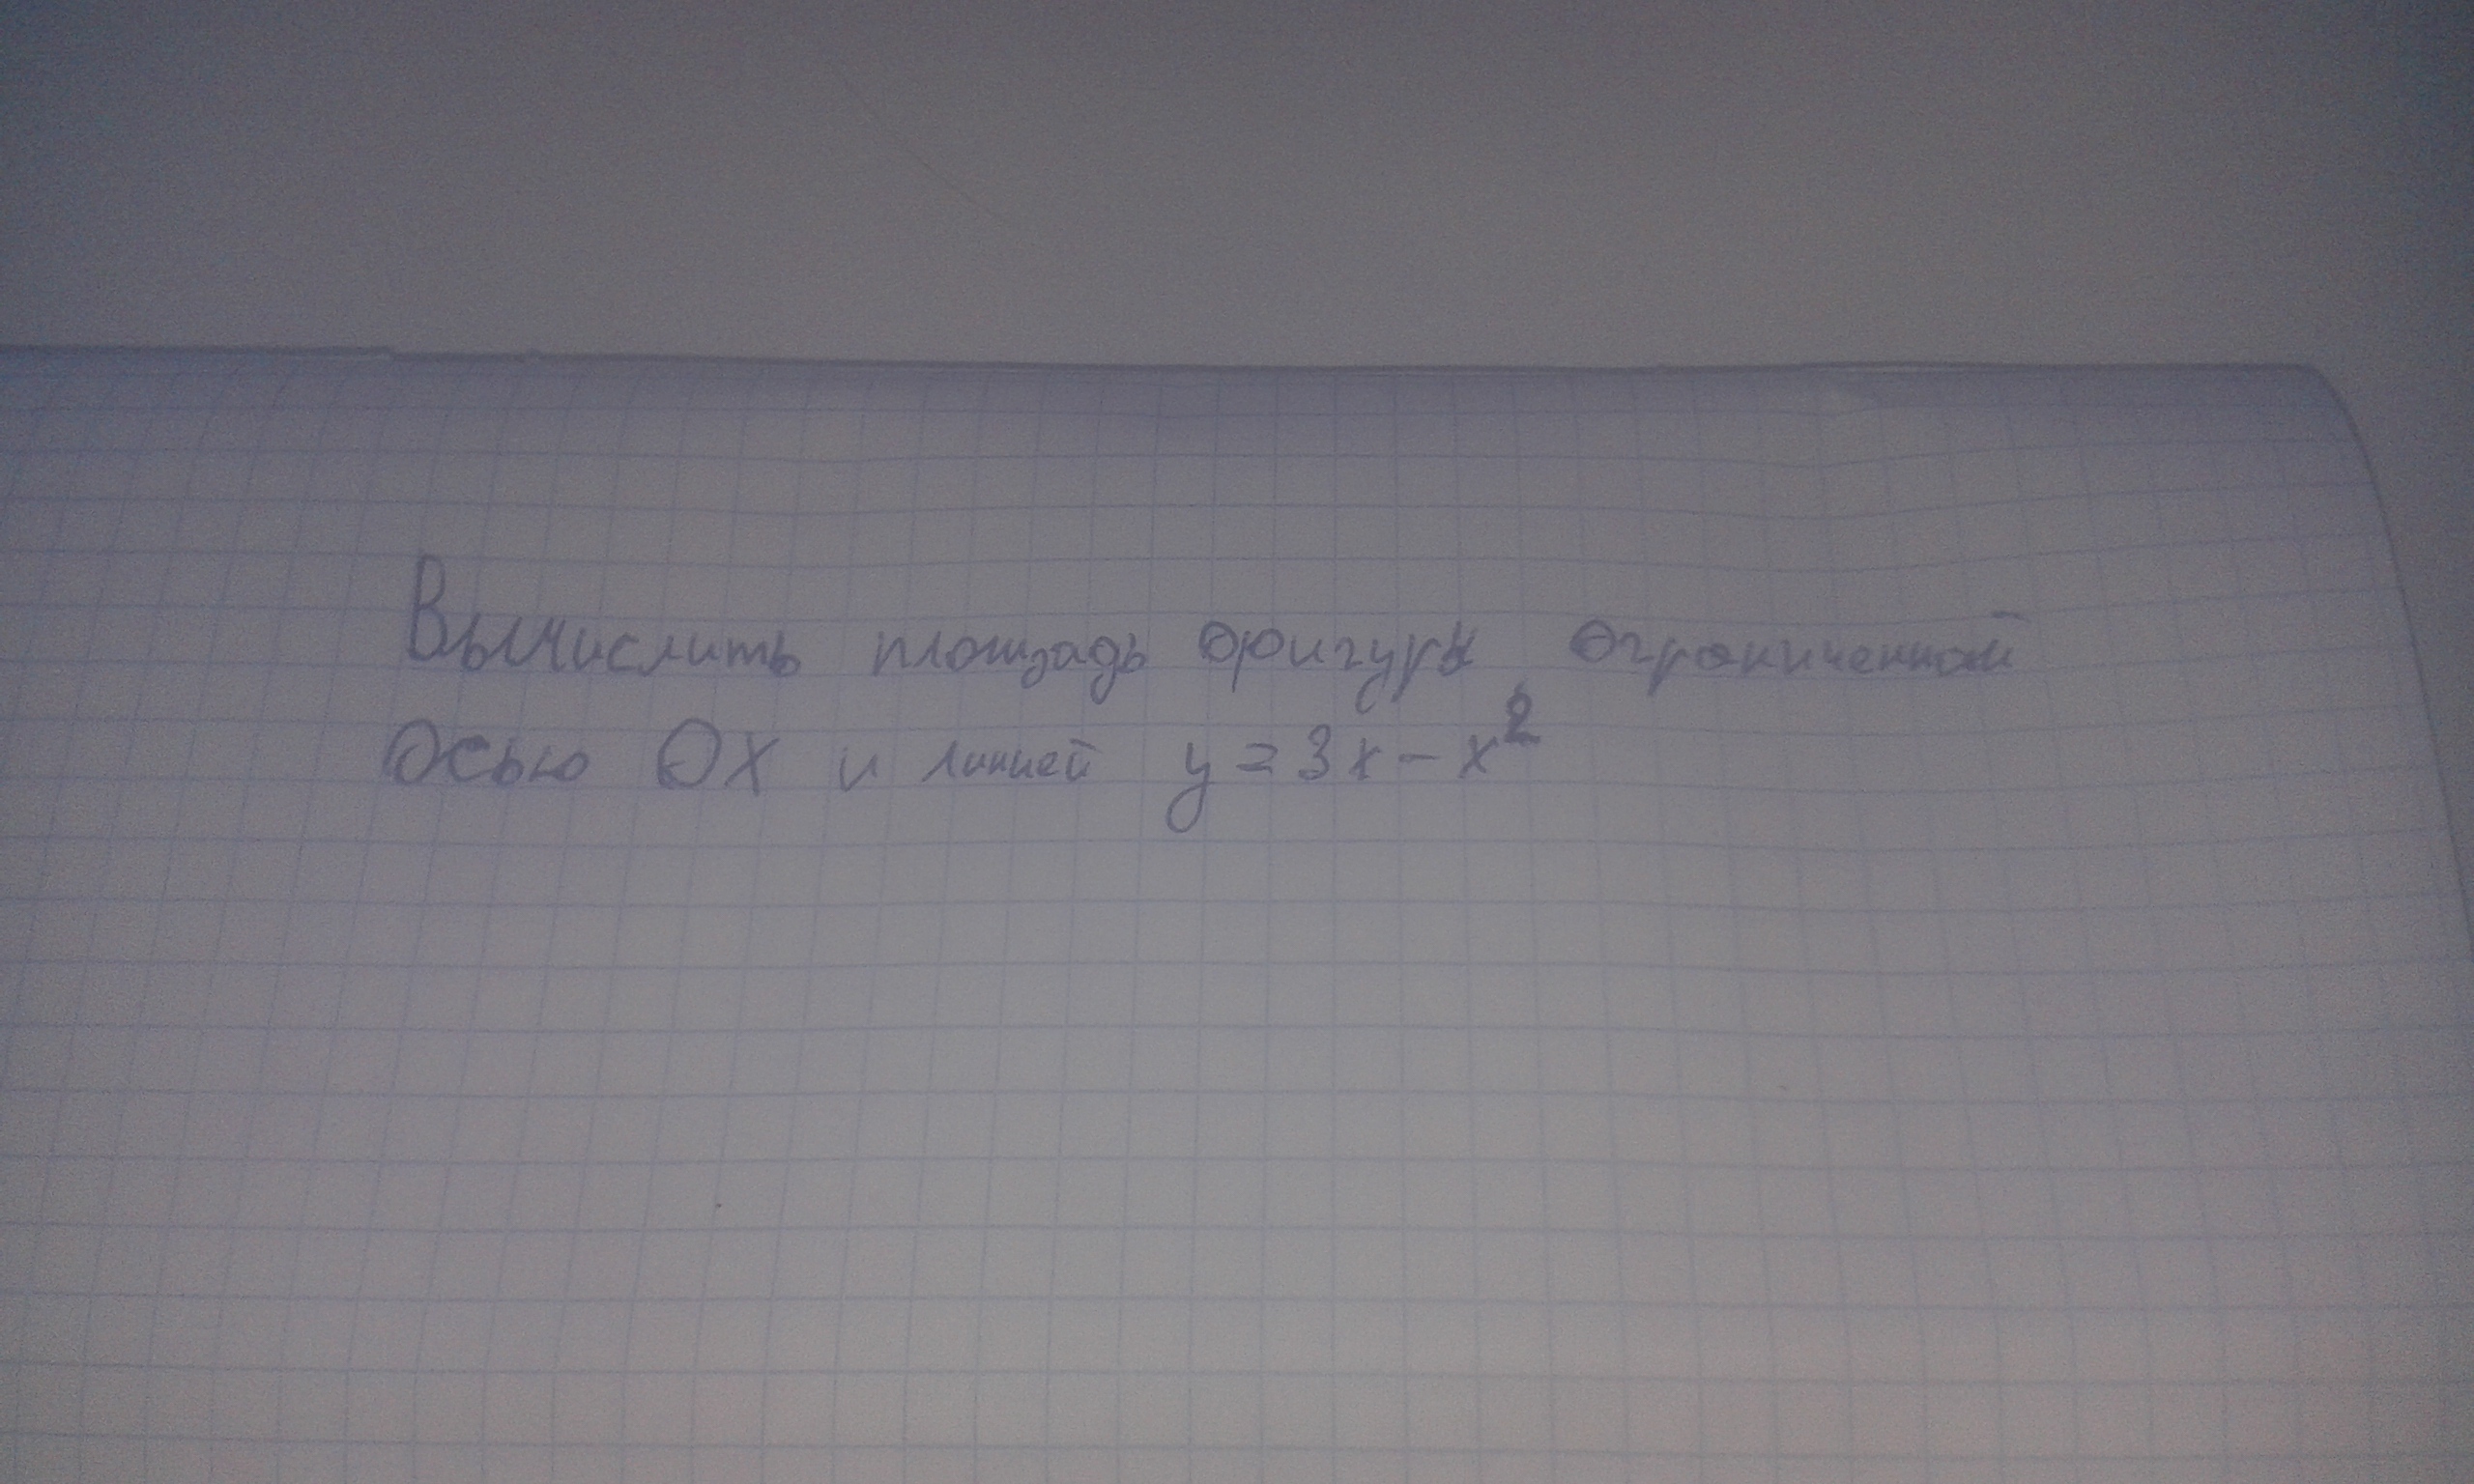 Вычислить площадь фигуры, ограниченной
осью Ox и линией y = 3x - x²